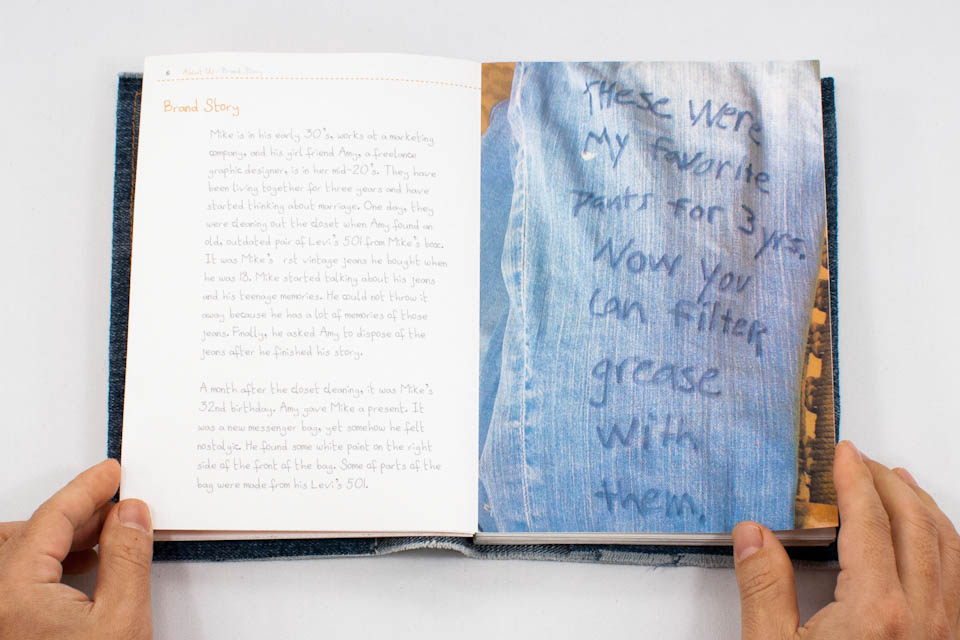 6 About Us / Brand Story
Brand Story
Mike is in his early 30's, works at a marketing
company, and his girl friend Amy, a freelance
graphic designer, is in her mid-20's. They have
been living together for three years and have
started thinking about marriage. One day, they
were cleaning out the closet when Amy found an
old, outdated pair of Levi's 501 from Mike's box.
It was Mike's rst vintage jeans he bought when
he was 18. Mike started talking about his jeans
and his teenage memories. He could not throw it
away because he has a lot of memories of those
jeans. Finally, he asked Amy to dispose of the
jeans after he finished his story.
A month after the closet cleaning, it was Mike's
32nd birthday. Amy gave Mike a present. It
was a new messenger bag, yet somehow he felt
nostalgic. He found some white paint on the right
side of the front of the bag. Some of parts of the
bag were made from his Levi's 501.
These were
My favorite
pants for 3 yrs.
Now you
can filter
grease
with
them.